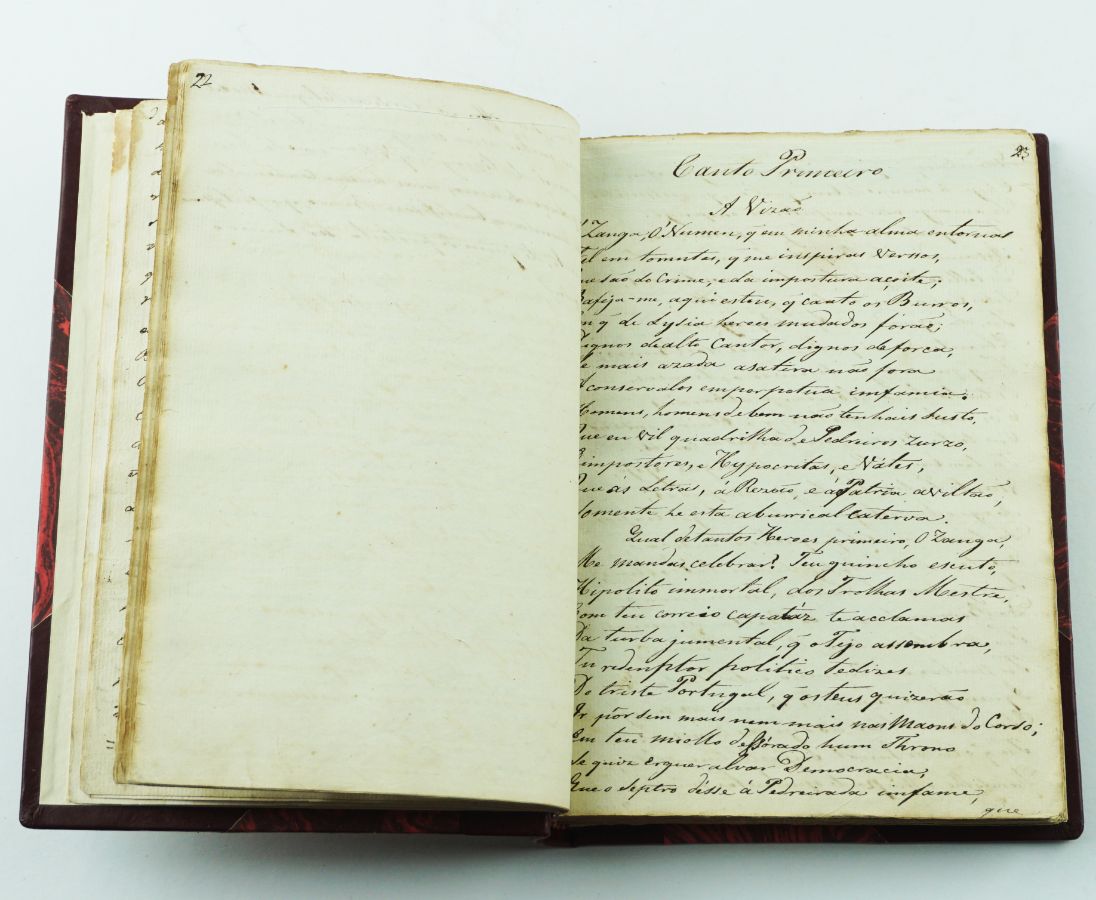 22
23
Canto Primeiro
A Vizaõ
Zanga, O' Numen, q' em minha alma entornas
em tomates, q' me inspiras Versos,
saõ do Crime, e da impostura açoite;
Bafeja-me, aqui esteve, q' canto os Burros,
q' de Lysia heroes mudados foraõ;
Dignos de alto Cantor, dignos de forca,
Se mais azada a satira naõ fora
A conservalos em perpetua infamia.
Homens, homens de bem naõ tenhais susto,
Que eu vil quadrilha de Pedreiros zurzo,
E impostores, e Hypocritas, e Vates,
Que ás Letras, á Rezaõ, e á Patria aviltaõ,
Somente he esta a burrical caterva.
Qual de tantos Heroes primeiro, O' Zanga,
Me mandas celebrar? Teu guincho escuto,
Hipolito immortal, dos Trolhas Mestre,
Com teu correio capatáz te acclamas
Da turba jumental, q' o Tejo assombra,
Tu redemptor politico te dizes
Do triste Portugal, q' os teus quizeraõ
Ir pôr sem mais nem mais nas Maons do Corso;
Em teu miollo hum Throno
Se quiz erguer alvar Democracia,
Que o Septro désse á Pedreirada infame,
que